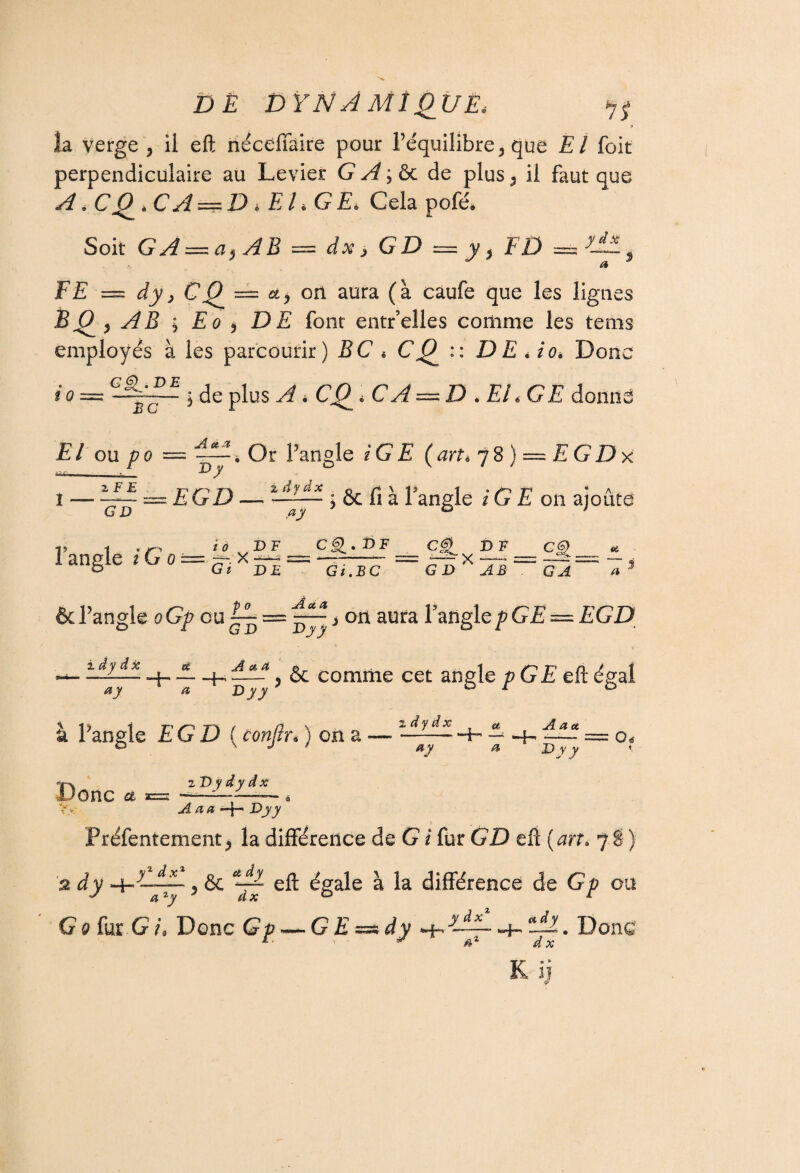 DE DYNAMIQUE. 75
la verge, il eſt néceſſaire pour l'équilibre, que El ſoit
perpendiculaire au Levier GA; & de plus, il faut que
A. CQ. CA = D. El. GE. Cela poſé.
Soit GA = a, AB = dx, GD = y, FD = y dx / a,
FE = dy, CQ = α, on aura (à cauſe que les lignes
BQ, AB ; Eo, DE ſont entr'elles comme les tems
employés à les parcourir) BC. CQ :: DE. io. Donc
io = CQ. DE / BC ; de plus A. CQ. CA = D. El. GE donne
El ou po = Aαa / Dy. Or l'angle iGE (art. 78) = EGD ×
1 — 2FE / GD = EGD — 2 dy dx / ay ; & ſi à l'angle iGE on ajoûte
l'angle iGo = io / Gi × DF / DE = CQ. DF / Gi. BC = CQ / GD × DF / AB = CQ / GA = α / a,
& l'angle oGp ou po / GD = Aαa / Dyy, on aura l'angle pGE = EGD
— 2 dy dx / ay + α / a + Aαa / Dyy, & comme cet angle pGE eſt égal
à l'angle EGD (conſtr.) on a — 2 dy dx / ay + α / a + Aaα / Dyy = 0.
Donc α = 2 Dy dy dx / Aaa + Dyy.
Préſentement, la différence de Gi ſur GD eſt (art. 78)
2 dy + y² dx² / a²y, & α dy / dx eſt égale à la différence de Gp ou
Go ſur Gi. Donc Gp — GE = dy + y dx² / a² + α dy / dx. Donc
K ij